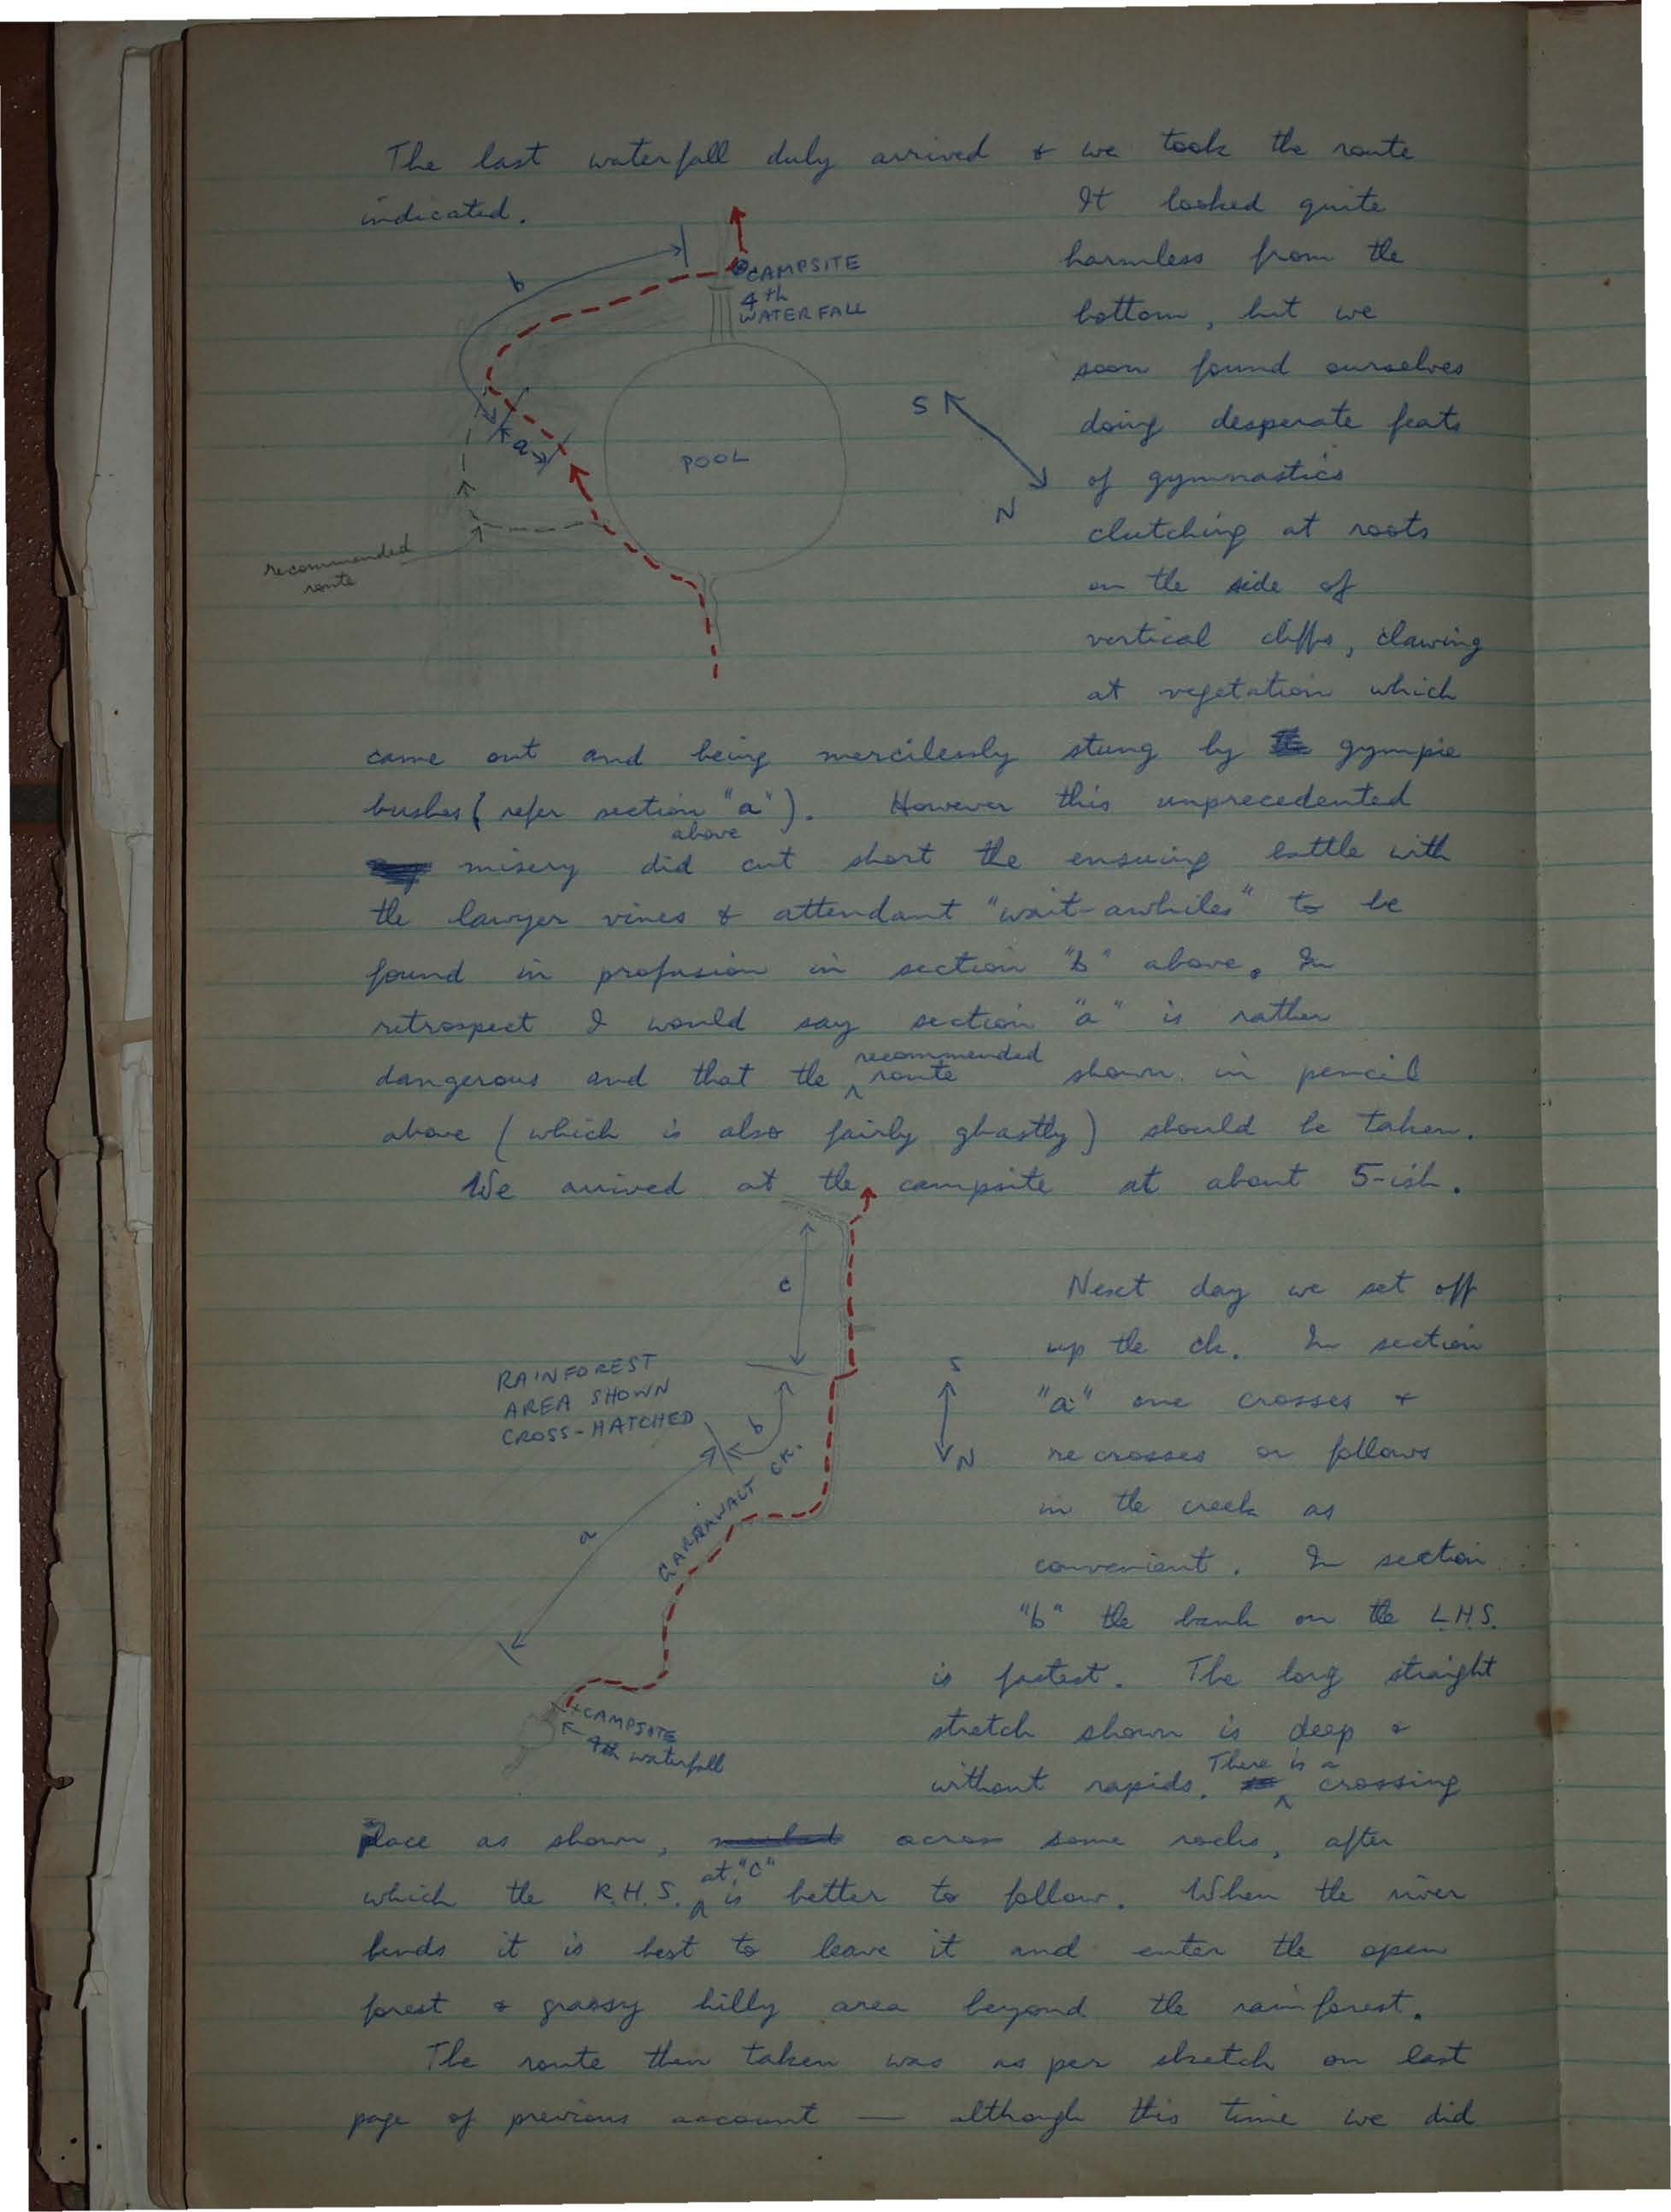 The last waterfall duly arrived & we took the route
indicated.
It looked quite
harmless from the
bottom, but we
soon found ourselves
doing desperate feats
of gymnastics
clutching at roots
on the side of
vertical cliffs, clawing
at vegetation which
b
CAMPSITE
4th
WATERFALL
a
POOL
S
N
recommended
route
came out and being mercilessly stung by gympie
bushes (refer section "a").  However this unprecedented
above
misery did cut short the ensuing battle with
the lawyer vines & attendant "wait-awhiles" to be
found in profusion in section "b" above. In
retrospect I would say section "a" is rather
recommended
dangerous and that the ^ route shown in pencil
above (which is also fairly ghastly) should be taken.
We arrived at the campsite at about 5-ish.
c
RAINFOREST
AREA SHOWN
CROSS-HATCHED
b
a
CK.
S
N
CAMPSITE
4th waterfall
Next day we set off
up the ck. In section
"a" one crosses &
recrosses or follows
in the creek as
convenient. In section
"b" the bank on the L.H.S.
is fastest. The long straight
stretch shown is deep &
There is a
without rapids. ^ crossing
place as shown, across some rocks, after
at "c"
which the R.H.S. ^ is better to follow. When the river
bends it is best to leave it and enter the open
forest & grassy hilly area beyond the rainforest.
The route then taken was as per sketch on last
page of previous account — although this time we did